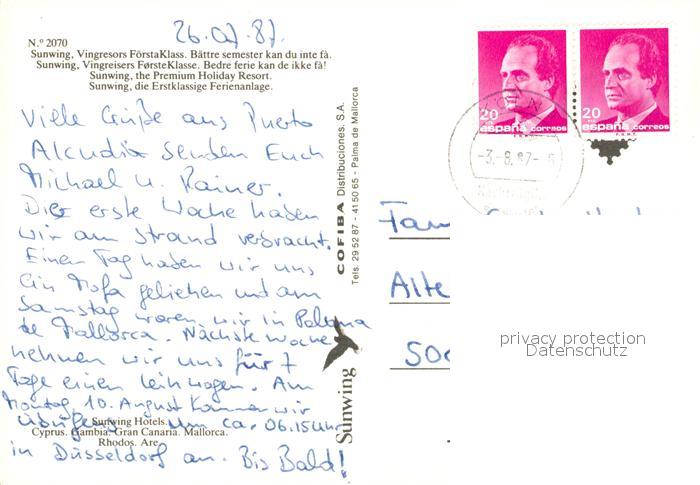 26.07.87.
N.º 2070
Sunwing, Vingresors FörstaKlass. Bättre semester kan du inte få.
Sunwing, Vingreisers FørsteKlasse. Bedre ferie kan de ikke få!
Sunwing, the Premium Holiday Resort.
Sunwing, die Erstklassige Ferienanlage.
Viele Grüße aus Puerto
Alcudia senden Euch
Michael u. Rainer.
Die erste Woche haben
wir am Strand verbracht.
Einen Tag haben wir uns
ein Mofa geliehen und am
Samstag waren wir in Palma
de Mallorca. Nächste Woche
nehmen wir uns für 7
Tage einen Leihwagen. Am
Montag 10. August kommen wir
übrigens um ca. 06.15 Uhr
in Düsseldorf an. Bis Bald!
Sunwing Hotels.
Cyprus. Gambia. Gran Canaria. Mallorca.
Rhodos. Are.
COFIBA Distribuciones, S.A.
Tels: 29 52 87 - 41 50 65 - Palma de Mallorca
Sunwing
20
españa correos
20
españa correos
-3.-8.87-
Fam
Alte
privacy protection
Datenschutz